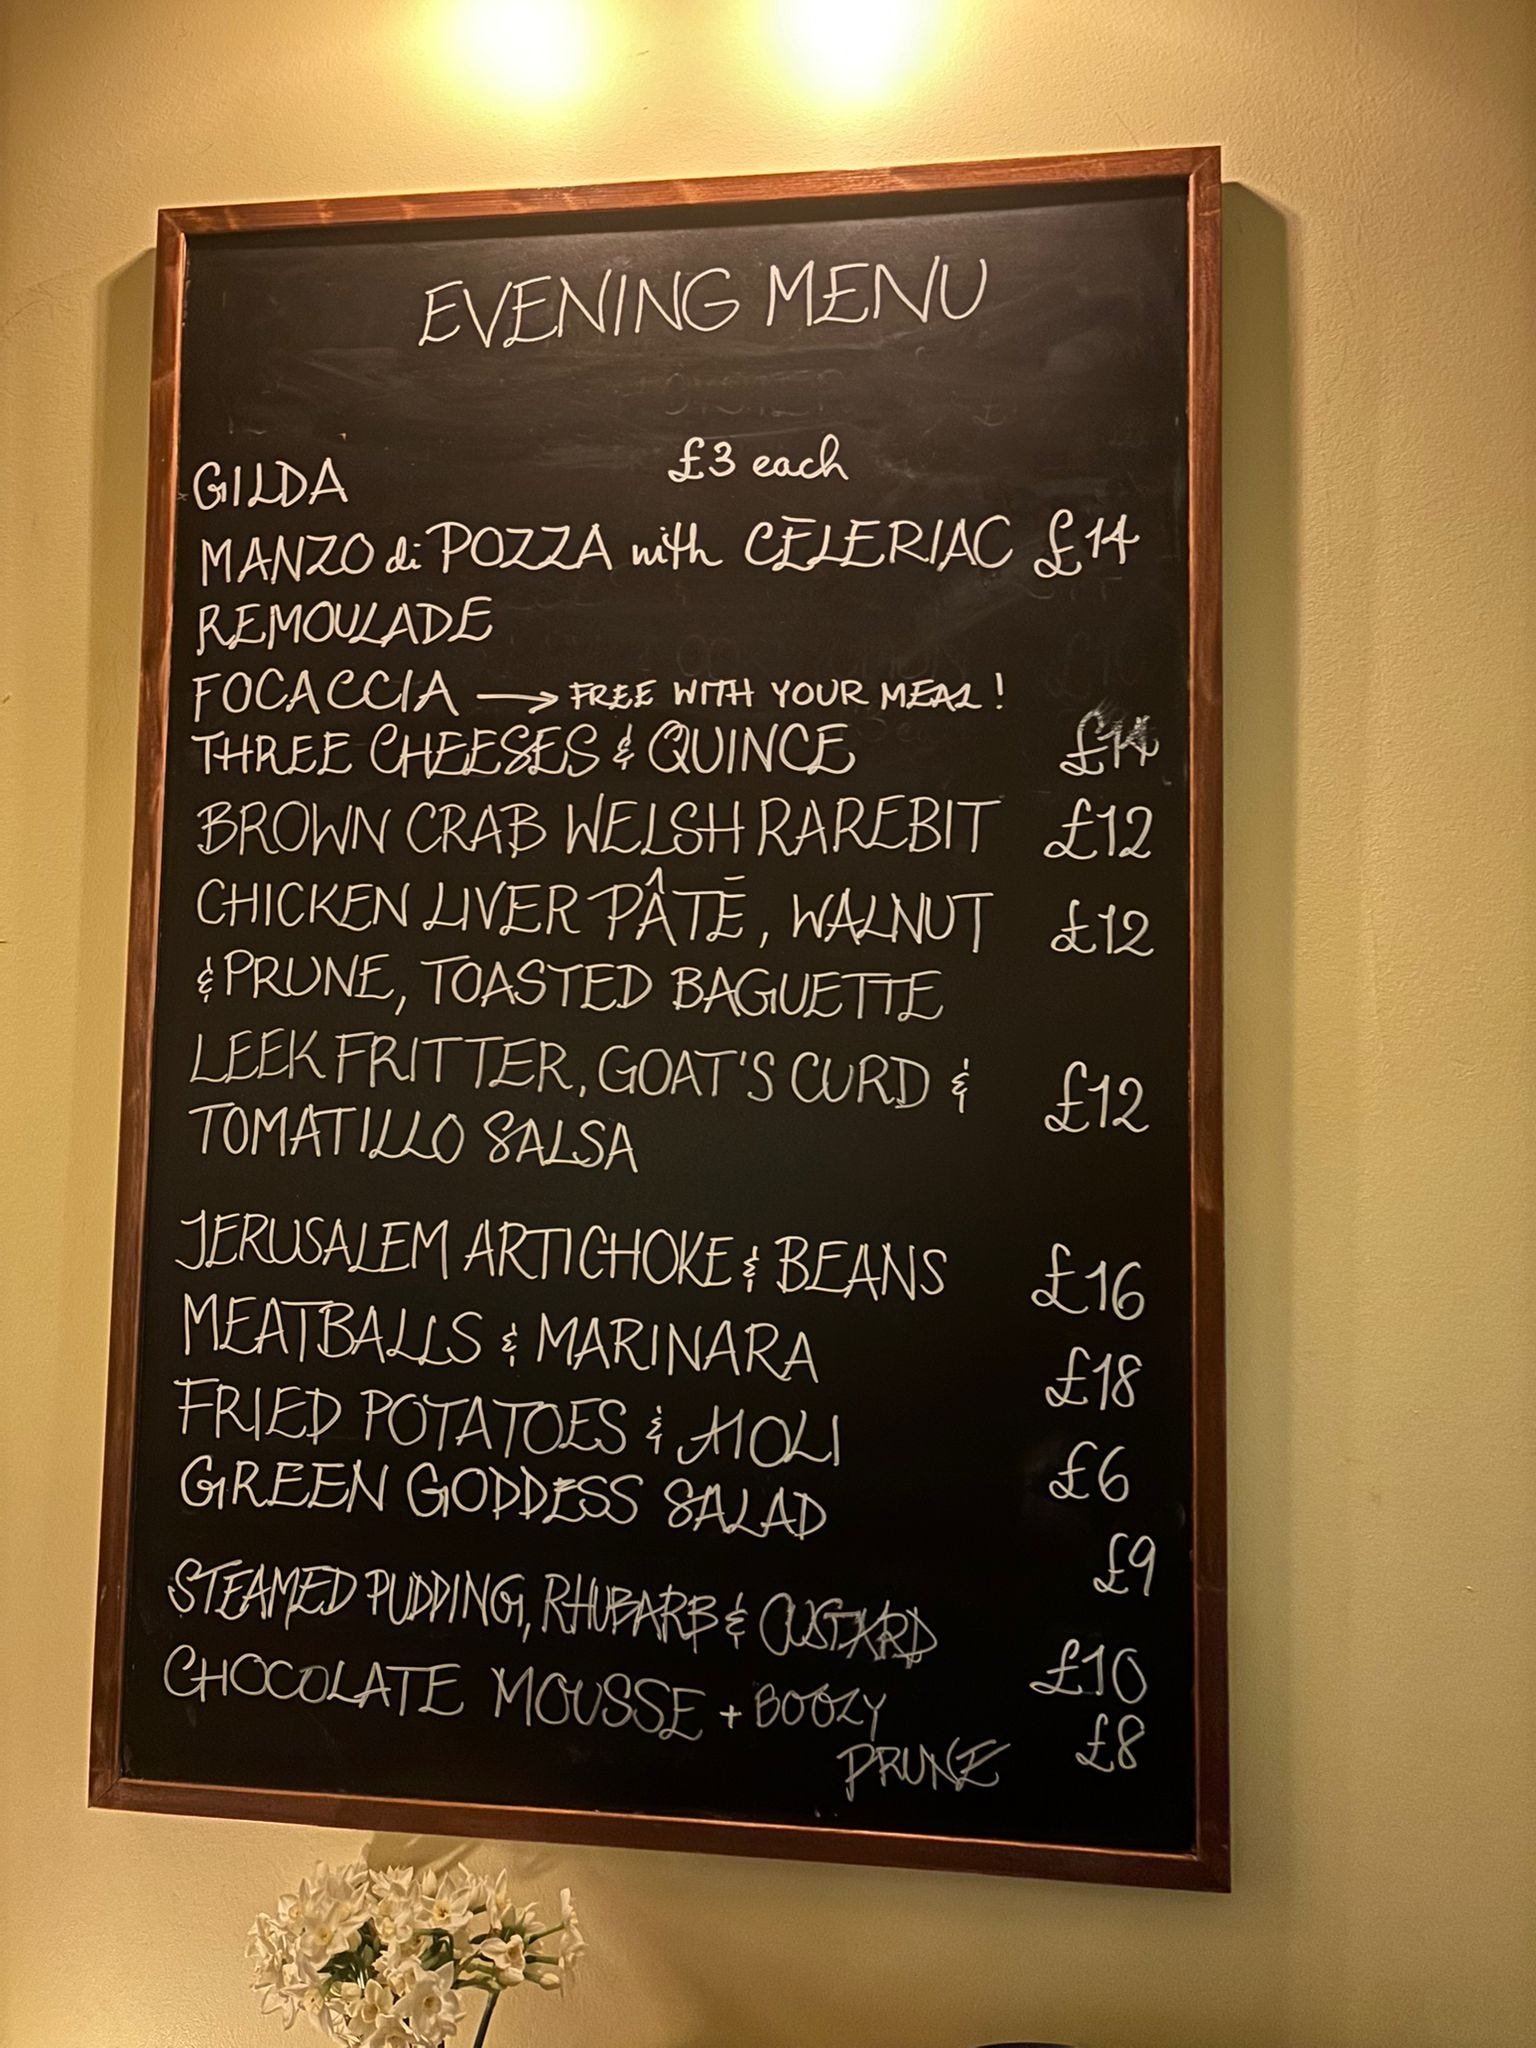 EVENING MENU
GILDA £3 each
MANZO di POZZA with CĒLERIAC £14
REMOULADE
FOCACCIA → FREE WITH YOUR MEAL!
THREE CHEESES & QUINCE £14
BROWN CRAB WELSH RAREBIT £12
CHICKEN LIVER PÂTĒ, WALNUT £12
& PRUNE, TOASTED BAGUETTE
LEEK FRITTER, GOAT'S CURD & £12
TOMATILLO SALSA
JERUSALEM ARTICHOKE & BEANS £16
MEATBALLS & MARINARA £18
FRIED POTATOES & AIOLI £6
GREEN GODDESS SALAD £9
STEAMED PUDDING, RHUBARB & CUSTARD £10
CHOCOLATE MOUSSE + BOOZY £8
PRUNE